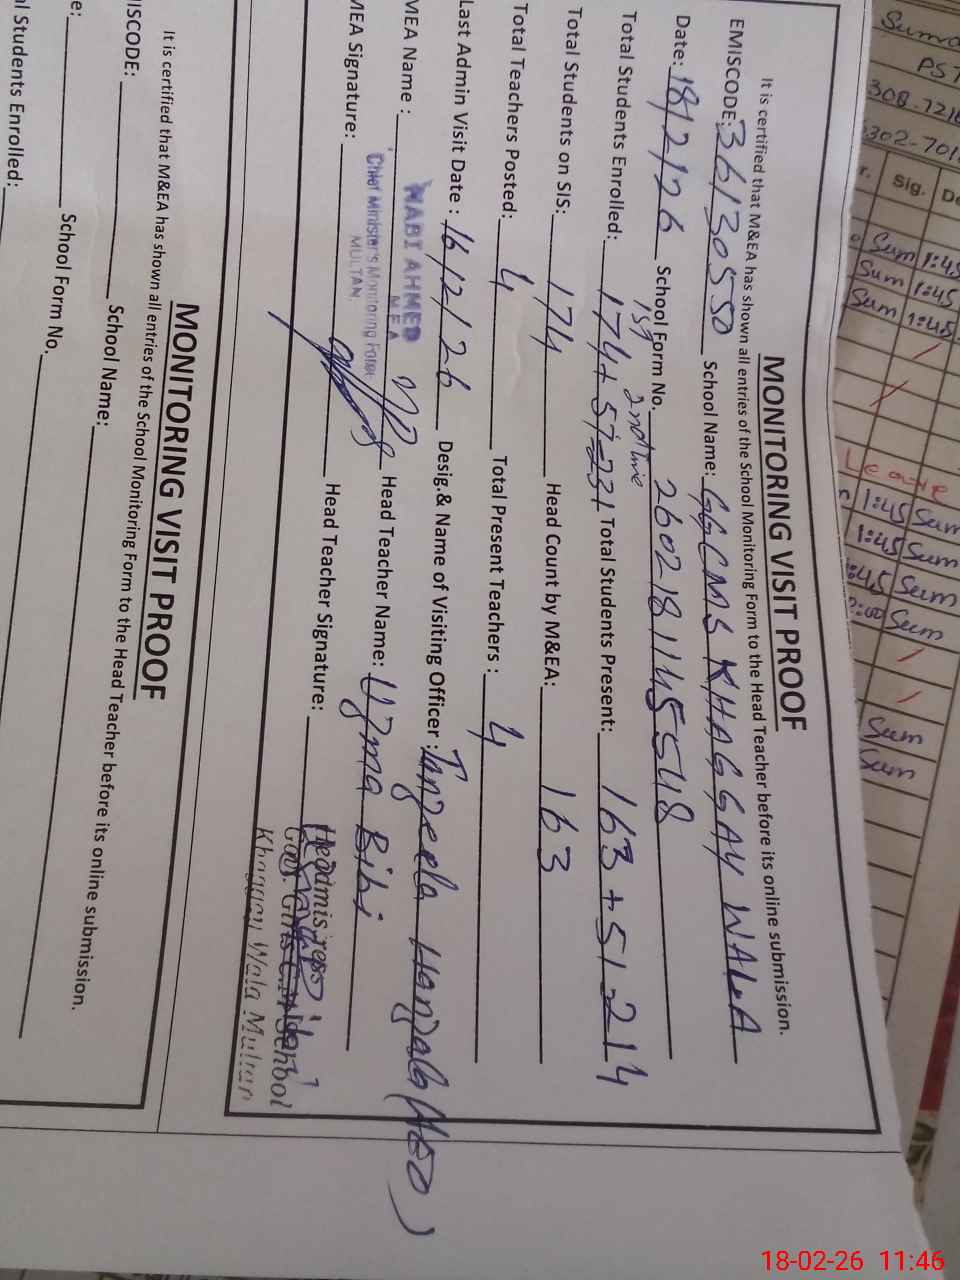 MONITORING VISIT PROOF
It is certified that M&EA has shown all entries of the School Monitoring Form to the Head Teacher before its online submission.
EMISCODE: 36130550 School Name: GGCMS KHAGGAY WALA
Date: 18/2/26 School Form No. 260218114554 8
1st 2nd time
Total Students Enrolled: 174+57=231 Total Students Present: 163+51=214
Total Students on SIS: 174 Head Count by M&EA: 163
Total Teachers Posted: 4 Total Present Teachers : 4
Last Admin Visit Date : 16/2/26 Desig.& Name of Visiting Officer : Tanzeela Hanzala (AEO)
MEA Name : NABI AHMED Head Teacher Name: Uzma Bibi
M.E.A
Chief Minister's Monitoring Force
MULTAN.
MEA Signature: Head Teacher Signature:
Headmistress
Govt. Girls School
Khaggay Wala Multan
MONITORING VISIT PROOF
It is certified that M&EA has shown all entries of the School Monitoring Form to the Head Teacher before its online submission.
ISCODE: School Name:
e: School Form No.
al Students Enrolled:
PST
Sig.
Sum 1:45
Sum 1:45
Sum 1:45
Leave
1:45 Sum
1:45 Sum
:45 Sum
Sum
Sum
Sum
18-02-26 11:46